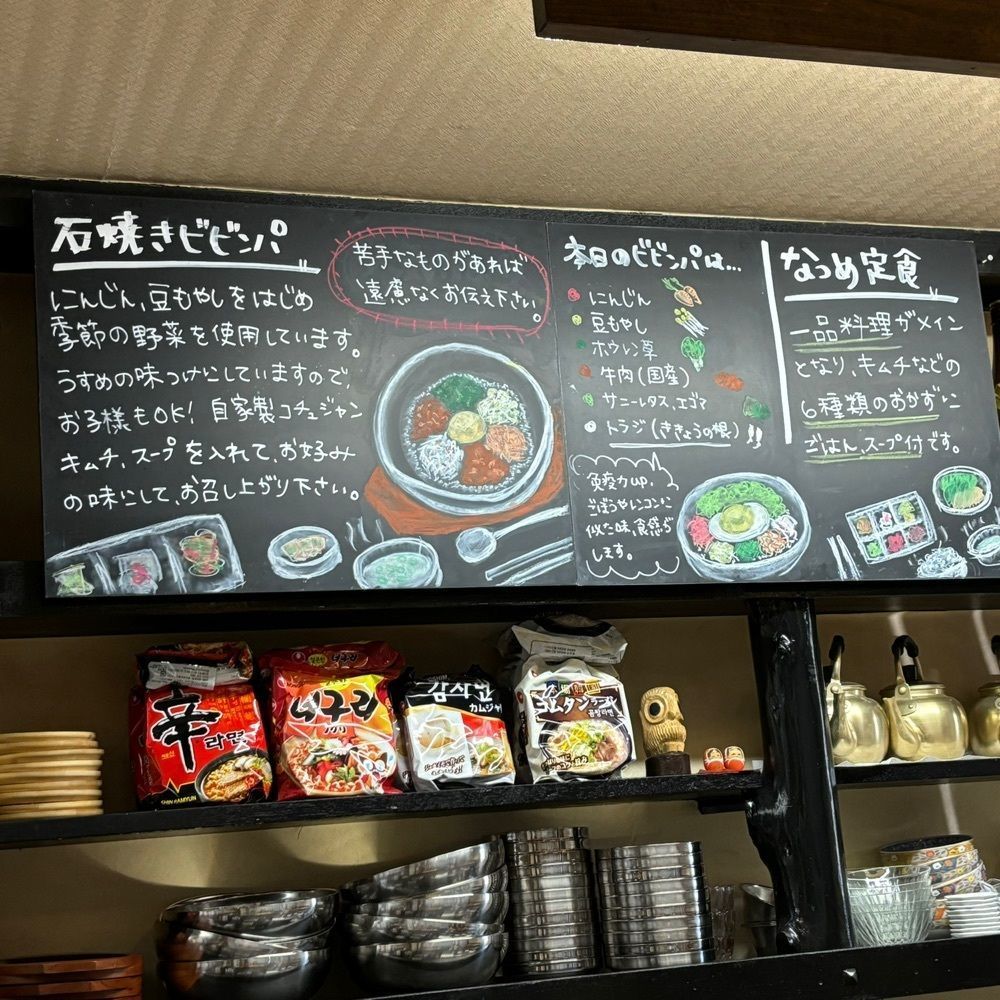 石焼きビビンバ
にんじん、豆もやしをはじめ
季節の野菜を使用しています。
うすめの味つけにしていますので、
お子様もOK! 自家製コチュジャン
キムチ、スープを入れて、お好み
の味にして、お召し上がり下さい。
苦手なものがあれば
遠慮なくお伝え下さい。
本日のビビンバは...
にんじん
豆もやし
ホウレン草
牛肉(国産)
サニーレタス、エゴマ
トラジ(ききょうの根)
免疫力up、
ごぼうやレンコンに
似た味、食感が
します。
なつめ定食
一品料理がメイン
となり、キムチなどの
6種類のおかずに
ごはん、スープ付です。
辛
라면
SHIN RAMYUN
너구리
ノグリ
감자면
カムジャ
コムタンラーメン
곰탕라면